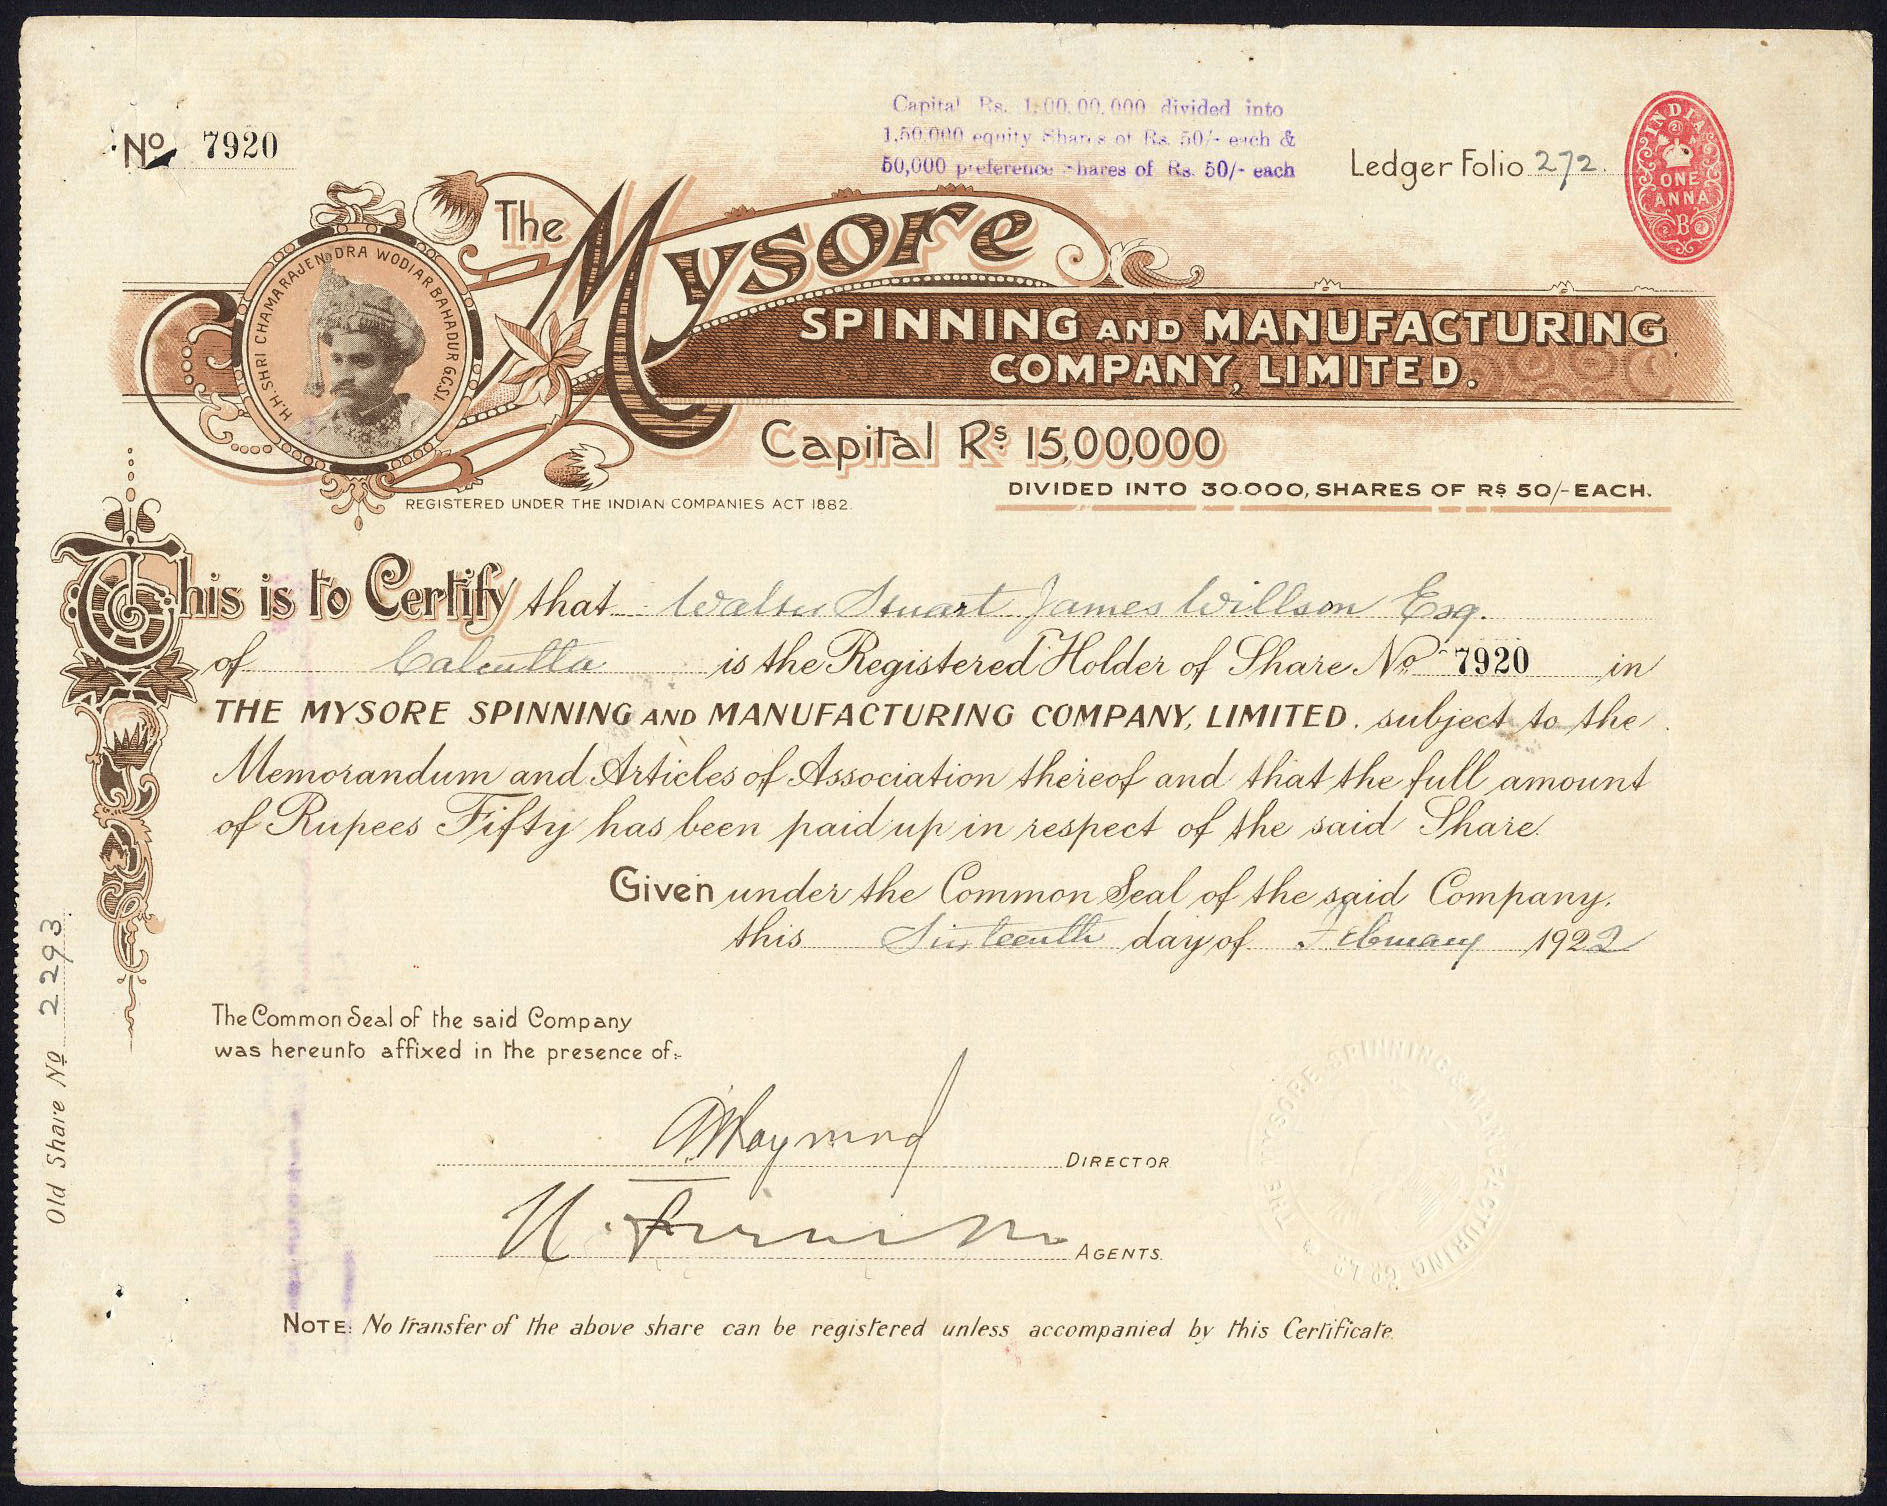 No 7920
Capital Rs. 1,00,00,000 divided into
1,50,000 equity Shares of Rs. 50/- each &
50,000 preference shares of Rs. 50/- each
Ledger Folio 272.
INDIA
ONE
ANNA
B
H.H. SHRI CHAMARAJENDRA WODIAR BAHADUR G.C.S.I.
The Mysore
SPINNING AND MANUFACTURING
COMPANY, LIMITED.
Capital Rs. 15,00,000
DIVIDED INTO 30.000, SHARES OF RS 50/- EACH.
REGISTERED UNDER THE INDIAN COMPANIES ACT 1882.
This is to Certify that Walter Stuart James Willson Esq.
of Calcutta is the Registered Holder of Share No 7920 in
THE MYSORE SPINNING AND MANUFACTURING COMPANY, LIMITED. subject to the
Memorandum and Articles of Association thereof and that the full amount
of Rupees Fifty has been paid up in respect of the said Share.
Given under the Common Seal of the said Company,
this Sixteenth day of February 1922
Old Share No 2293
The Common Seal of the said Company
was hereunto affixed in the presence of:-
DIRECTOR
AGENTS.
THE MYSORE SPINNING & MANUFACTURING CO. LD.
NOTE: No transfer of the above share can be registered unless accompanied by this Certificate.